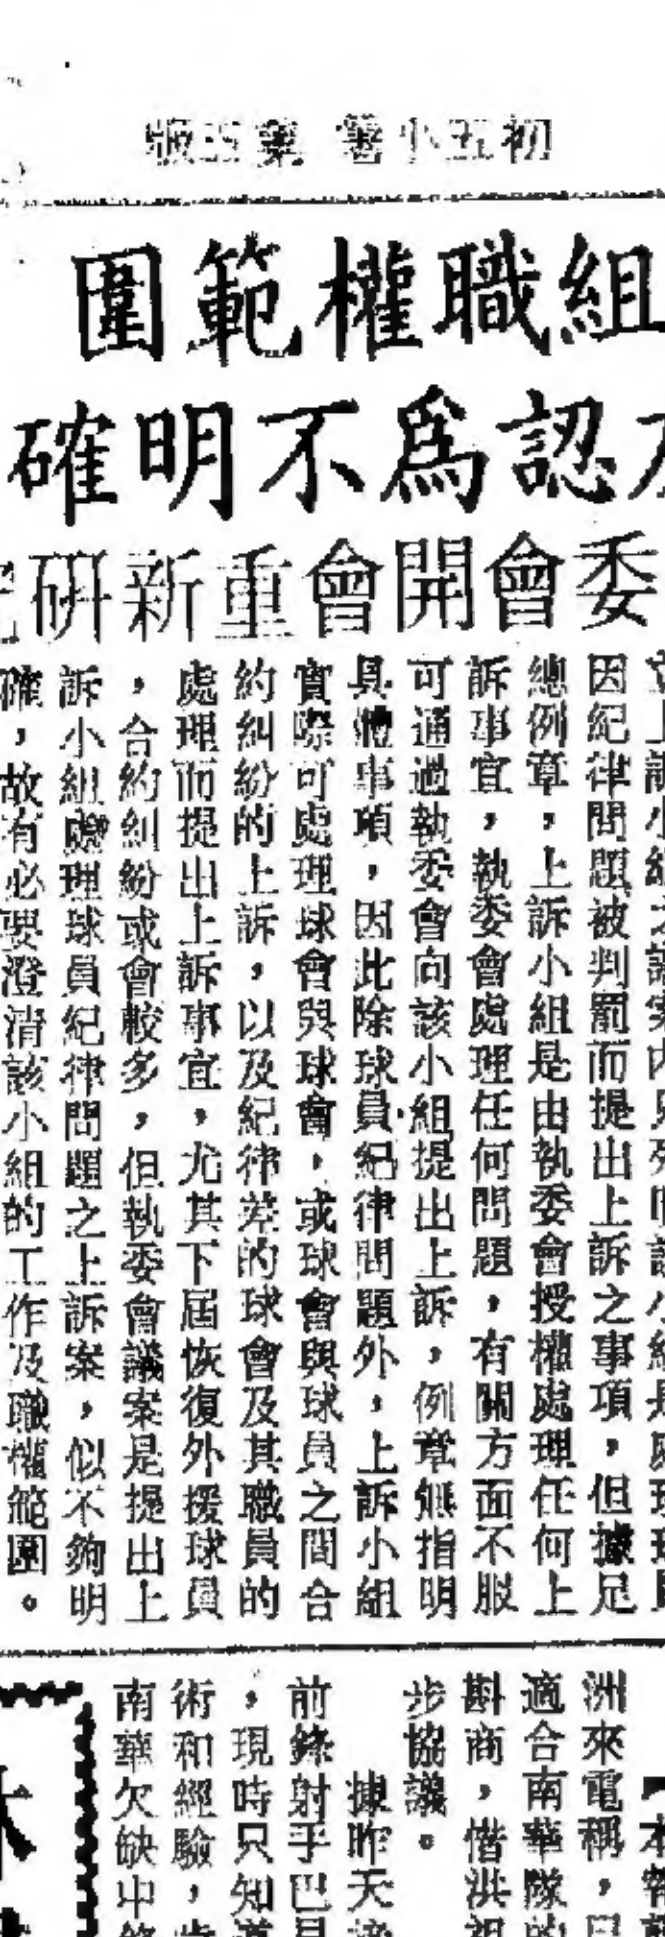 初五小暑 第三版
組職權範圍
認為不明確
委會開會重新研
因紀律問題被判罰而提出上訴之事項，但據足
總例章，上訴小組是由執委會授權處理任何上
訴事宜，執委會處理任何問題，有關方面不服
可通過執委會向該小組提出上訴，例章無指明
具體事項，因此除球員紀律問題外，上訴小組
實際可處理球會與球會，或球會與球員之間合
約糾紛的上訴，以及紀律差的球會及其職員的
處理而提出上訴事宜，尤其下屆恢復外援球員
，合約糾紛或會較多，但執委會議案是提出上
訴小組處理球員紀律問題之上訴案，似不夠明
確，故有必要澄清該小組的工作及職權範圍。
洲來電稱，
適合南華隊的
斟商，惜洪祖
步協議。
據昨天
前鋒射手巴
，現時只知道
術和經驗，
南華欠缺中